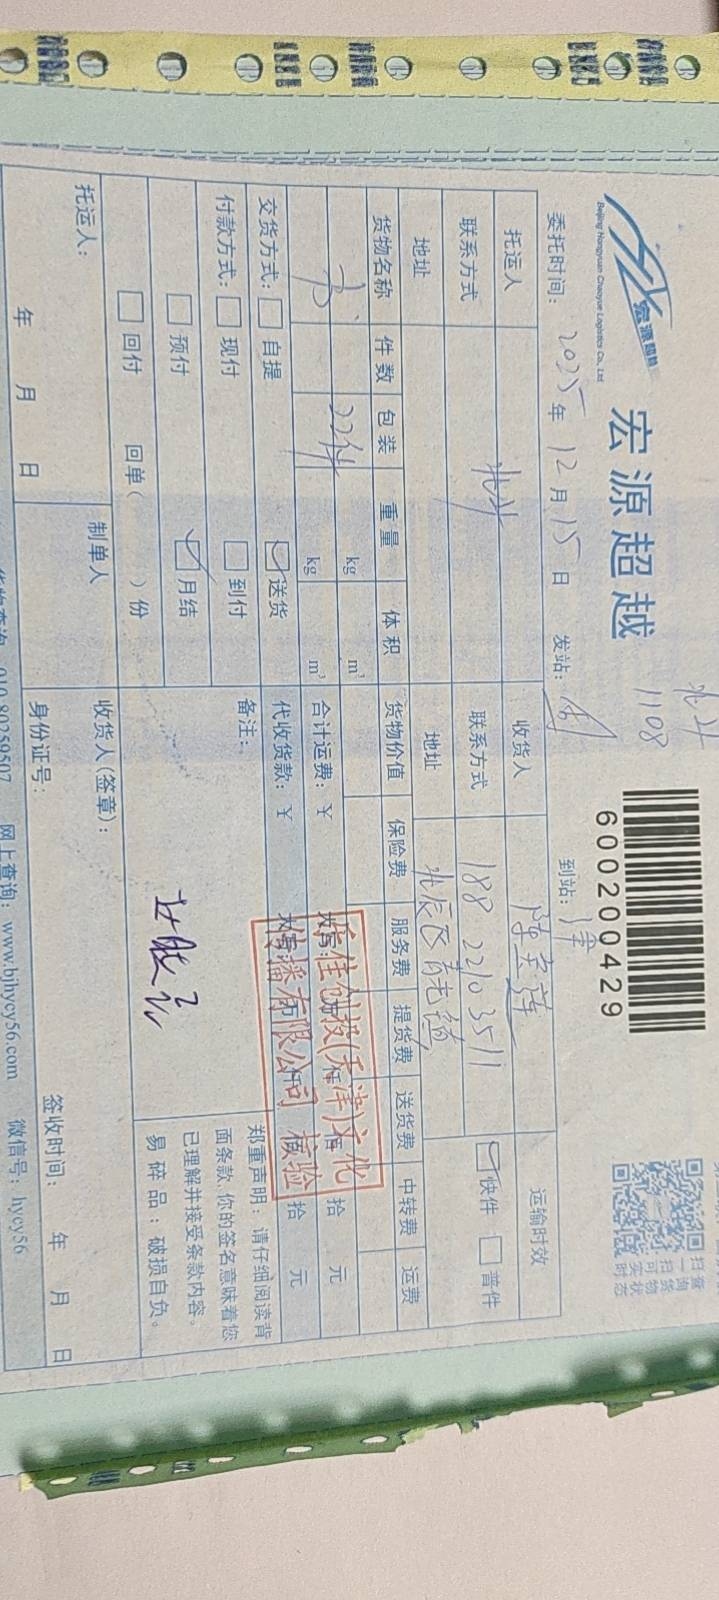 宏源超越
Beijing Hongyuan Chaoyue Logistics Co., Ltd
宏源超越
北斗
1108
600200429
扫一扫 可实时
查询货物状态
委托时间: 2025年12月15日 发站: 到站: 津
托运人 北斗 收货人 运输时效
联系方式 联系方式 188 2210 3511 快件 普件
地址 地址 北辰区青光镇
货物名称 件数 包装 重量 体积 货物价值 保险费 服务费 提货费 送货费 中转费 运费
书 22件 kg m³
kg m³ 合计运费: ¥ 大写: 拾 元
交货方式: 自提 送货 代收货款: ¥ 大写: 拾 元
佳创投(天津)文化
传播有限公司 核验
付款方式: 现付 到付 备注:
预付 月结
回付 回单( )份
郑重声明: 请仔细阅读背
面条款, 你的签名意味着您
已理解并接受条款内容。
易碎品: 破损自负。
托运人: 制单人 收货人(签章):
年 月 日 身份证号: 签收时间: 年 月 日
010-80259507 网上查询: www.bjhycy56.com 微信号: hycy56